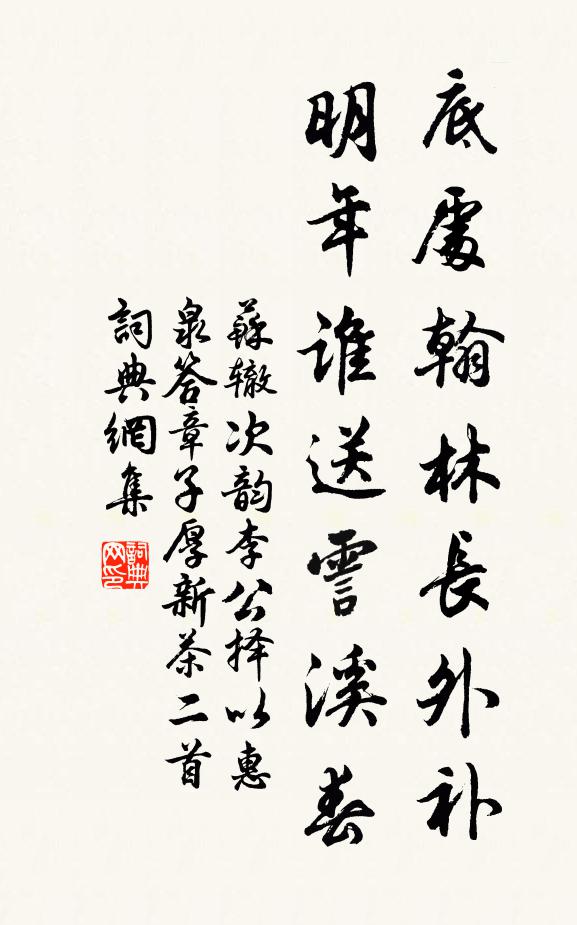 底處翰林長外补
明年誰送霅溪春
蘇辙次韵李公择以惠
泉答章子厚新茶二首
詞典網集
詞典网印